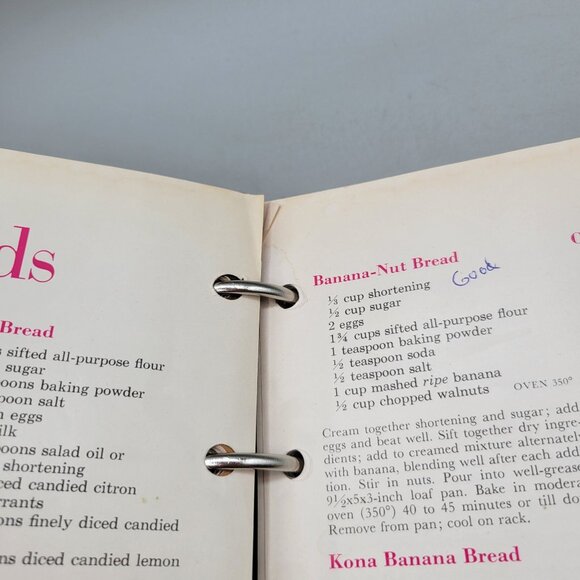 ds
Bread
sifted all-purpose flour
sugar
oons baking powder
spoon salt
n eggs
ilk
spoons salad oil or
shortening
ced candied citron
rrants
ons finely diced candied
ns diced candied lemon
Banana-Nut Bread
Good
⅓ cup shortening
½ cup sugar
2 eggs
1¾ cups sifted all-purpose flour
1 teaspoon baking powder
½ teaspoon soda
½ teaspoon salt
1 cup mashed ripe banana
½ cup chopped walnuts OVEN 350°
Cream together shortening and sugar; add
eggs and beat well. Sift together dry ingre-
dients; add to creamed mixture alternatel
with banana, blending well after each addi
tion. Stir in nuts. Pour into well-grease
9½x5x3-inch loaf pan. Bake in modera
oven (350°) 40 to 45 minutes or till do
Remove from pan; cool on rack.
Kona Banana Bread